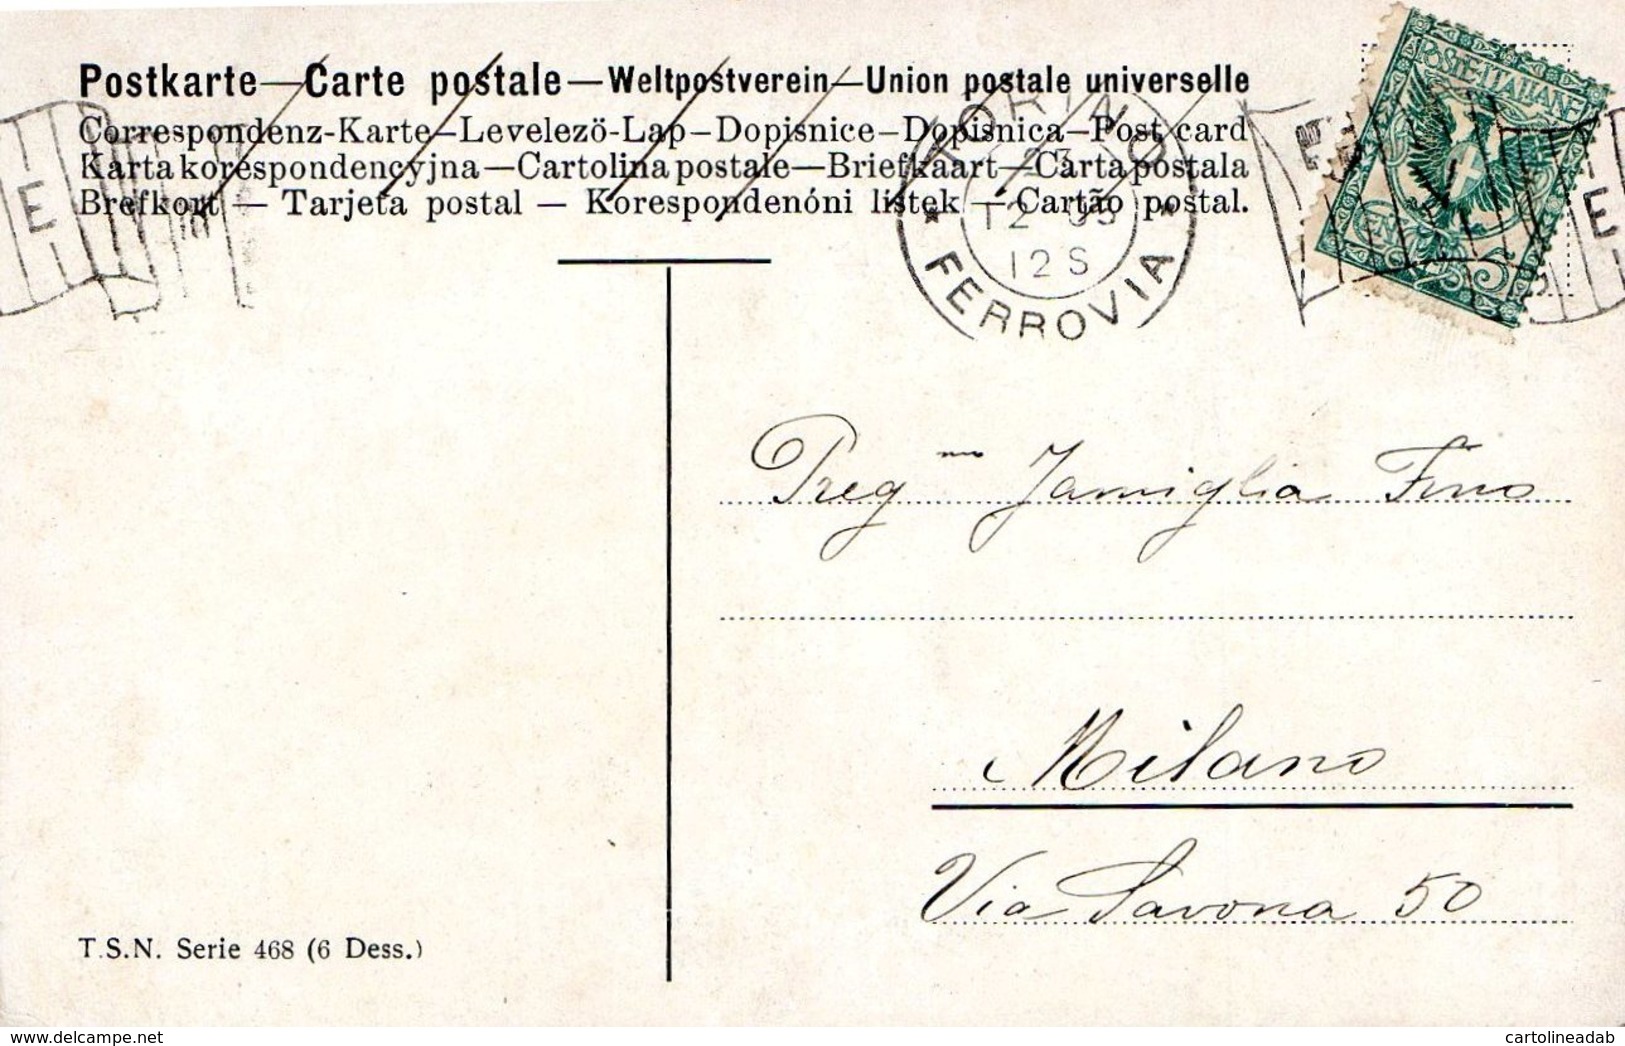 Postkarte—Carte postale—Weltpostverein—Union postale universelle
Correspondenz-Karte—Levelezö-Lap—Dopisnice—Dopisnica—Post card
Karta korespondencyjna—Cartolina postale—Briefkaart—Carta postala
Brefkort — Tarjeta postal — Korespondenóni listek — Cartão postal.
TORINO
23
12 05
12 S
* FERROVIA *
POSTE·ITALIANE
5
E
E
Preg Famiglia Fino
Milano
Via Savona 50
T.S.N. Serie 468 (6 Dess.)
delcampe.net
cartolineadab